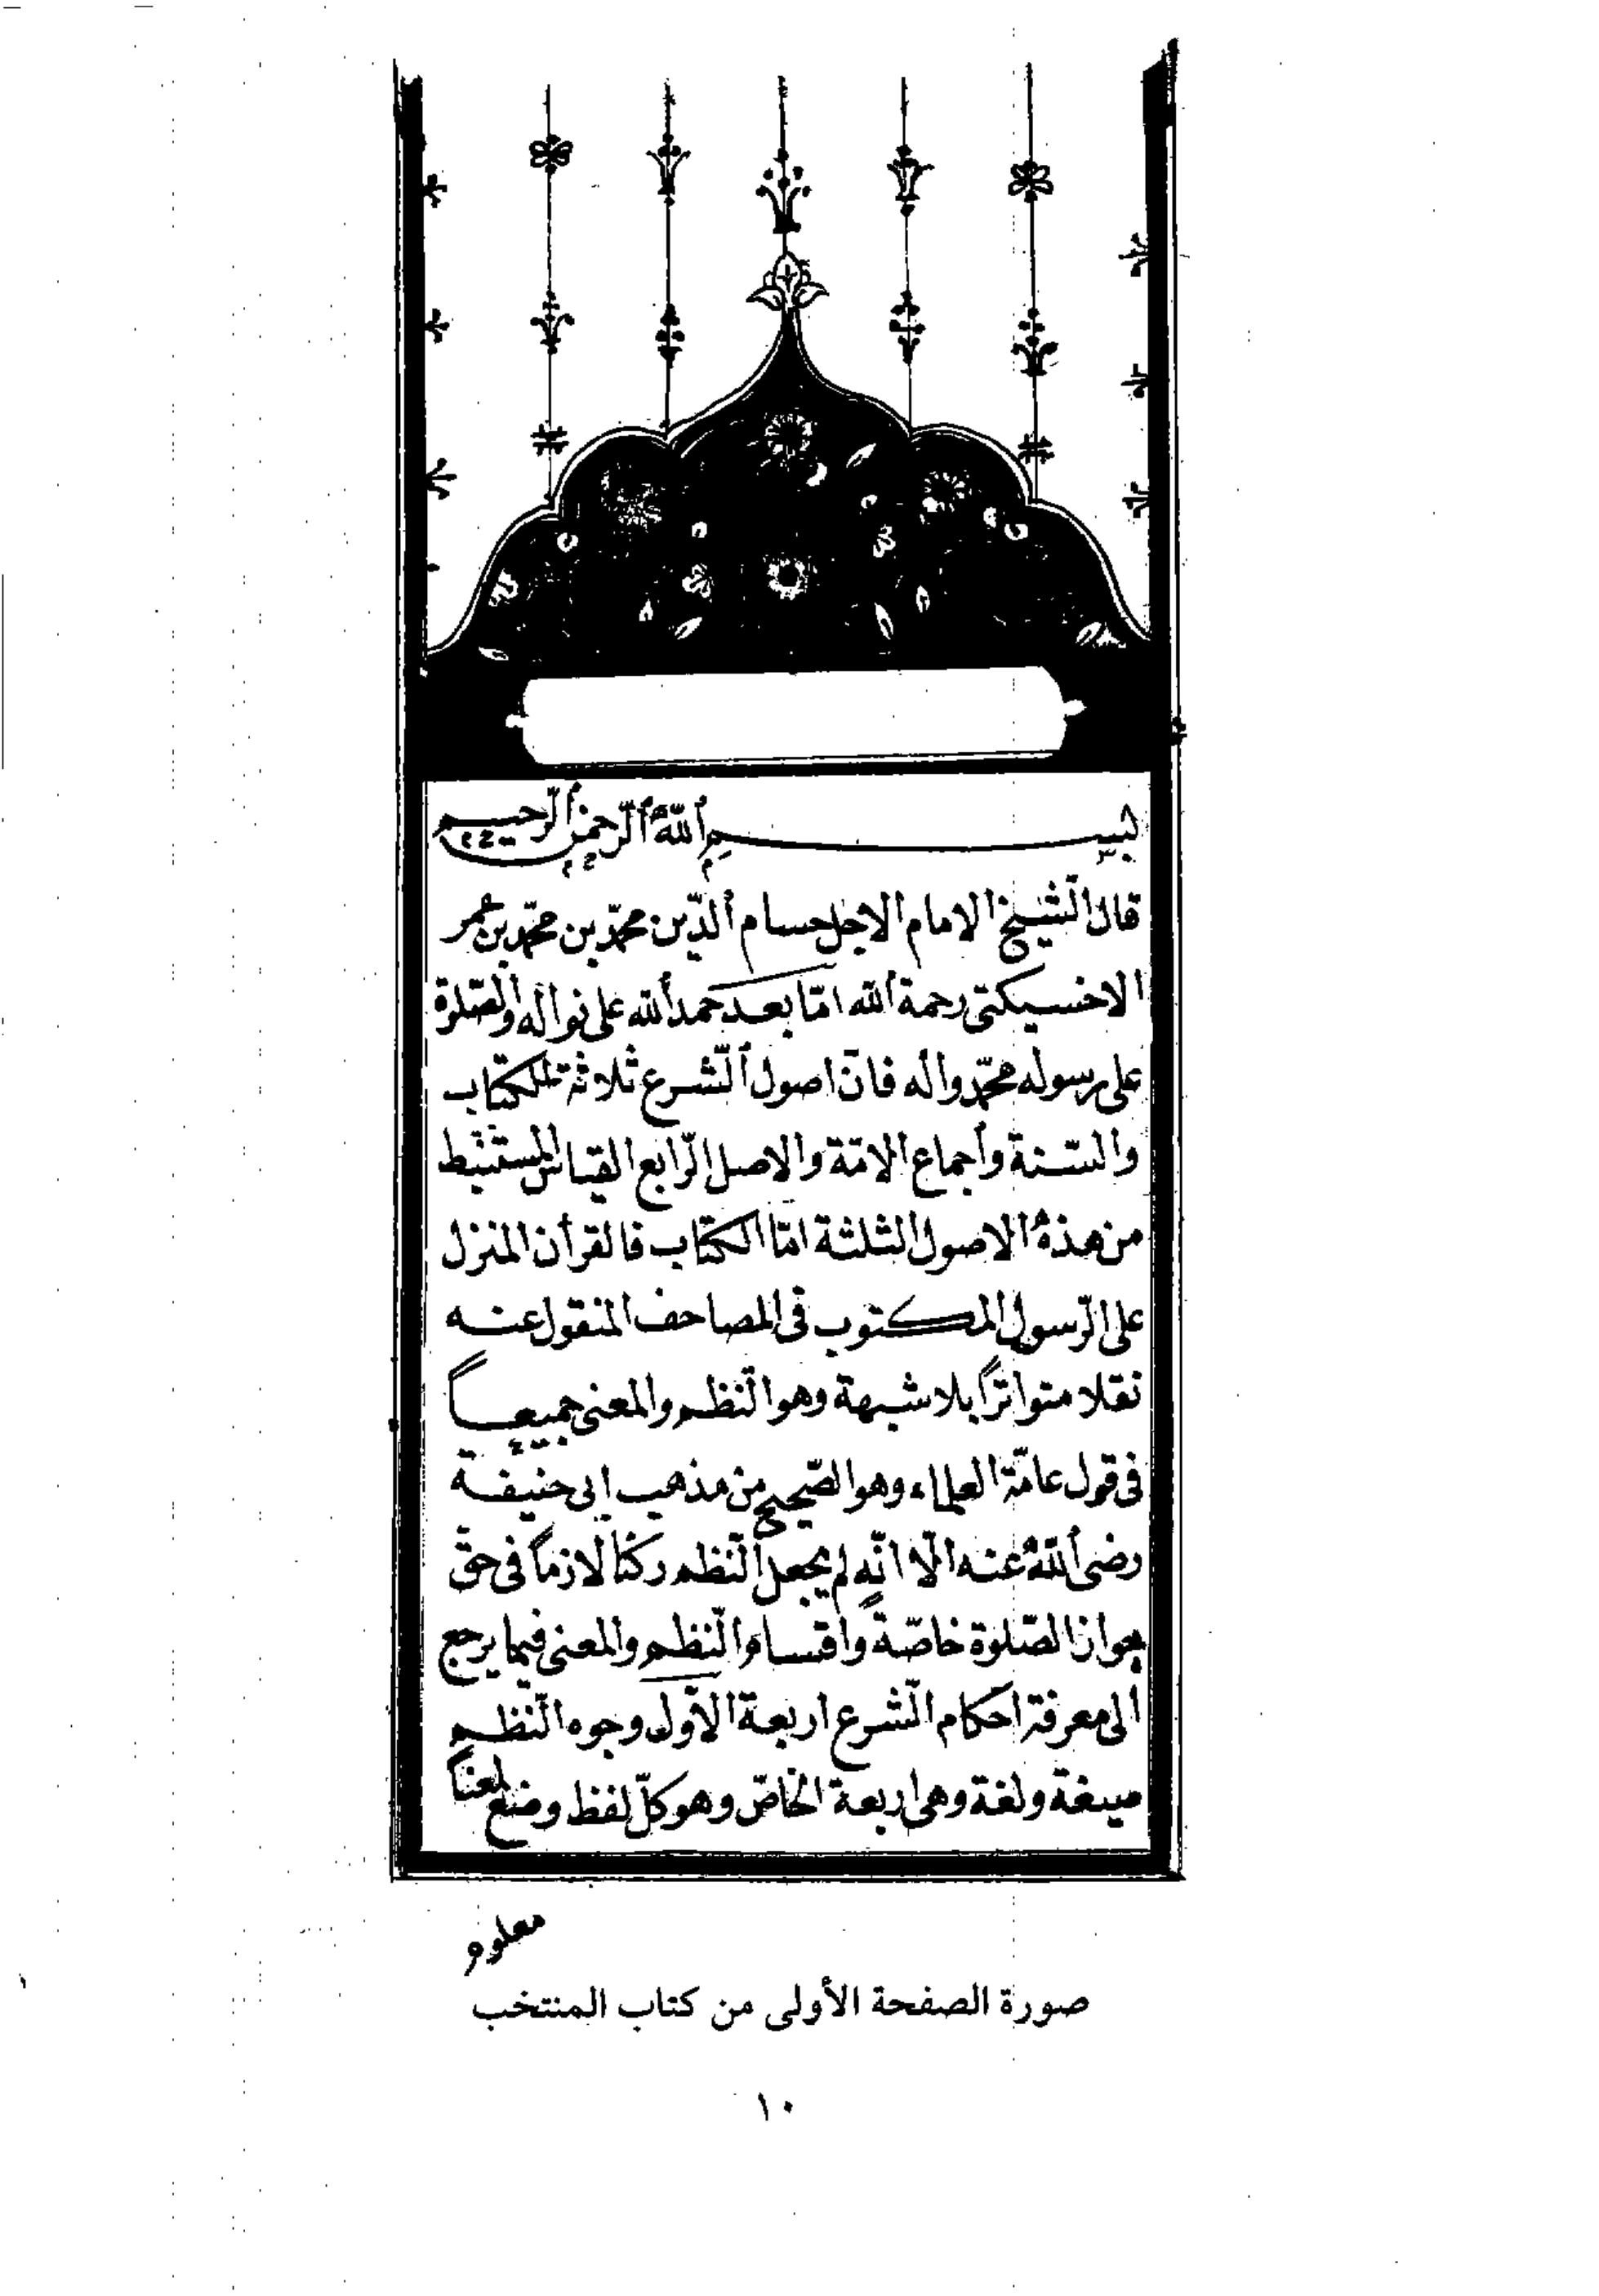 بسم الله الرحمن الرحيم
قال الشيخ الامام الاجل حسام الدين محمد بن محمد بن عمر
الاخسيكتى رحمة الله امّا بعد حمد الله على نواله والصّلوة
على رسوله محمّد واله فانّ اصول الشّرع ثلاثة الكتاب
والسّنة وأجماع الامّة والاصل الرّابع القياس المستنبط
من هذه الاصول الثلثة امّا الكتاب فالقرأن المنزل
على الرّسول المكتوب فى المصاحف المنقول عنه
نقلا متواتراً بلا شبهة وهو النّظم والمعنى جميعاً
فى قول عامّة العلماء وهو الصّحيح من مذهب ابى حنيفة
رضى الله عنه الّا انّه لم يجعل النّظم ركنًا لازماً فى حقّ
جواز الصّلوة خاصّةً واقسام النّظم والمعنى فيما يرجع
الى معرفة احكام الشّرع اربعة الاوّل وجوه النّظم
صيغة ولغة وهى اربعة الخاصّ وهو كلّ لفظ وضع لمعنًا
معلوم
صورة الصفحة الأولى من كتاب المنتخب
١٠